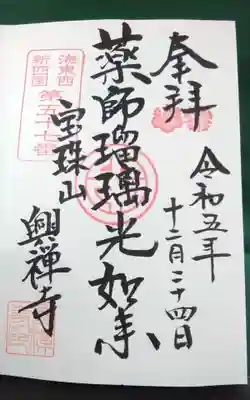 奉拝
令和五年
十二月二十四日
薬師瑠璃光如来
湖東西
新四国
第五十七番
宝珠山
興禅寺